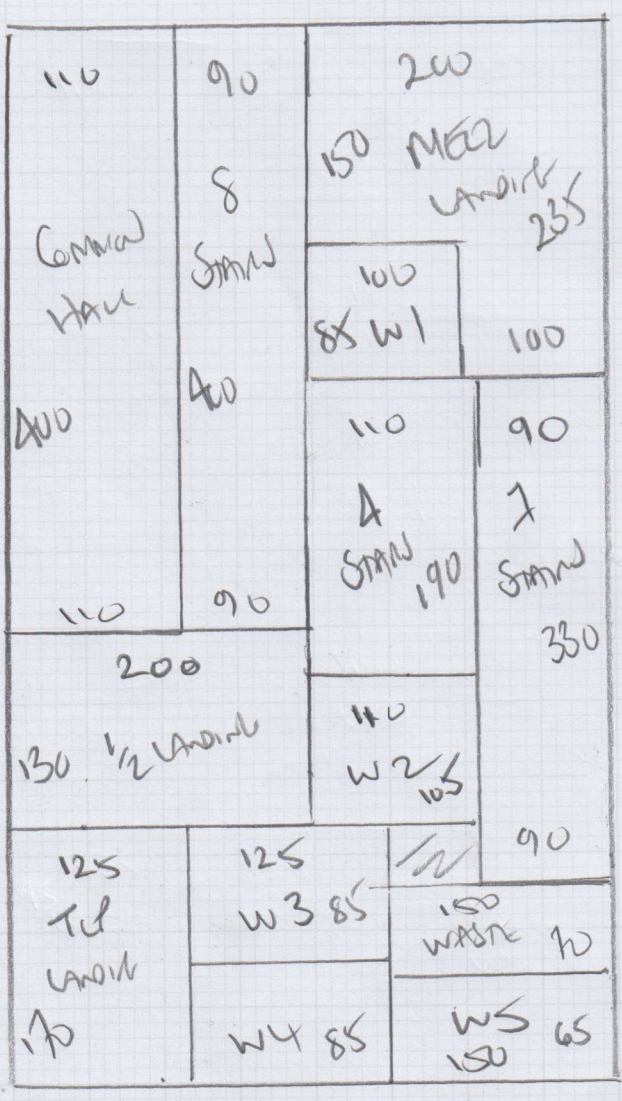 110
COMMON
HALL
400
110
90
8
STAIRS
400
90
200
150 MEZZ
LANDING
235
100
100
85 W1
110
4
STAIRS
190
90
7
STAIRS
330
90
200
130 1/2 LANDING
110
W2 105
125
TOP
LANDING
170
125
W3 85
W4 85
150
WASTE 70
W5 65
150